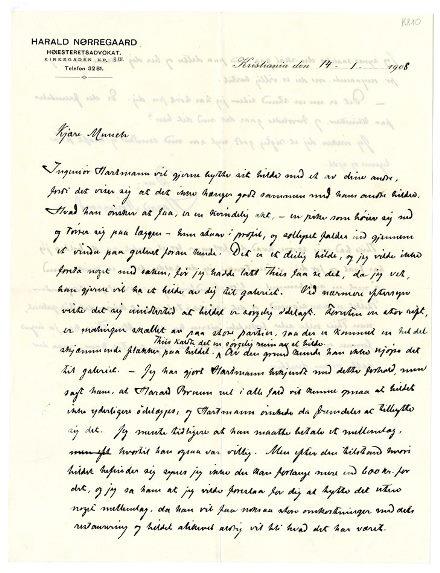 K810
HARALD NØRREGAARD
HØIESTERETSADVOKAT.
KIRKEGADEN
Telefon 3281.
Kristiania den 14 - 1. 1908
Kjære Munch
Ingeniør Hartmann vil gjerne bytte sit billede med et av dine andre,
fordi det viser sig at det ikke hænger godt sammen med hans andre billeder.
Hvad han ønsker at faa, er en kvindelig akt, – en pike som bøier sig ned
og tørrer sig paa læggen – hun staar i profil, og sollyset falder ind gjennem
et vindu paa gulvet foran hende. Det er et deilig billede, og jeg vilde ikke
foreta noget med saken, før jeg hadde latt Thiis faa se det, da jeg vet,
han gjerne vil ha et billede av dig til galleriet. Ved nærmere eftersyn
viste det sig imidlertid at billedet er sørgelig ødelagt. Foruten en stor rift,
er malingen skallet av paa store partier, saa der er kommet en hel del
skjæmmende flækker paa billedet. Thiis kaldte det en sørgelig ruin av et billede.
Av den grund kunde han ikke kjøpe det
til galleriet. – Jeg har gjort Hartmann bekjendt med dette forhold men
sagt ham, at Harald Brun vel i alle fald vil kunne opnaa at billedet
ikke yderligere ødelægges, og Hartmann ønsket da fremdeles at tilbytte
sig det. Jeg mente tidligere at han maatte betale et mellemlag,
hvortil han ogsaa var villig. Men efter den tilstand hvori
billedet befinder sig synes jeg ikke du kan forlange mere end 600 kr. for
det, og jeg sa ham at jeg vilde foreslaa for dig at bytte det uten
noget mellemlag, da han vil faa nokså store omkostninger med dets
restaurering og billedet allikevel aldrig vil bli hvad det har været.